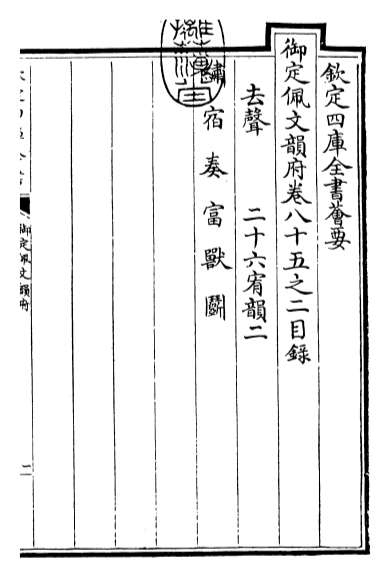 欽定四庫全書薈要
御定佩文韻府卷八十五之二目録
去聲 二十六宥韻二
繡 宿 奏 富 獸 鬭
御定佩文韻府